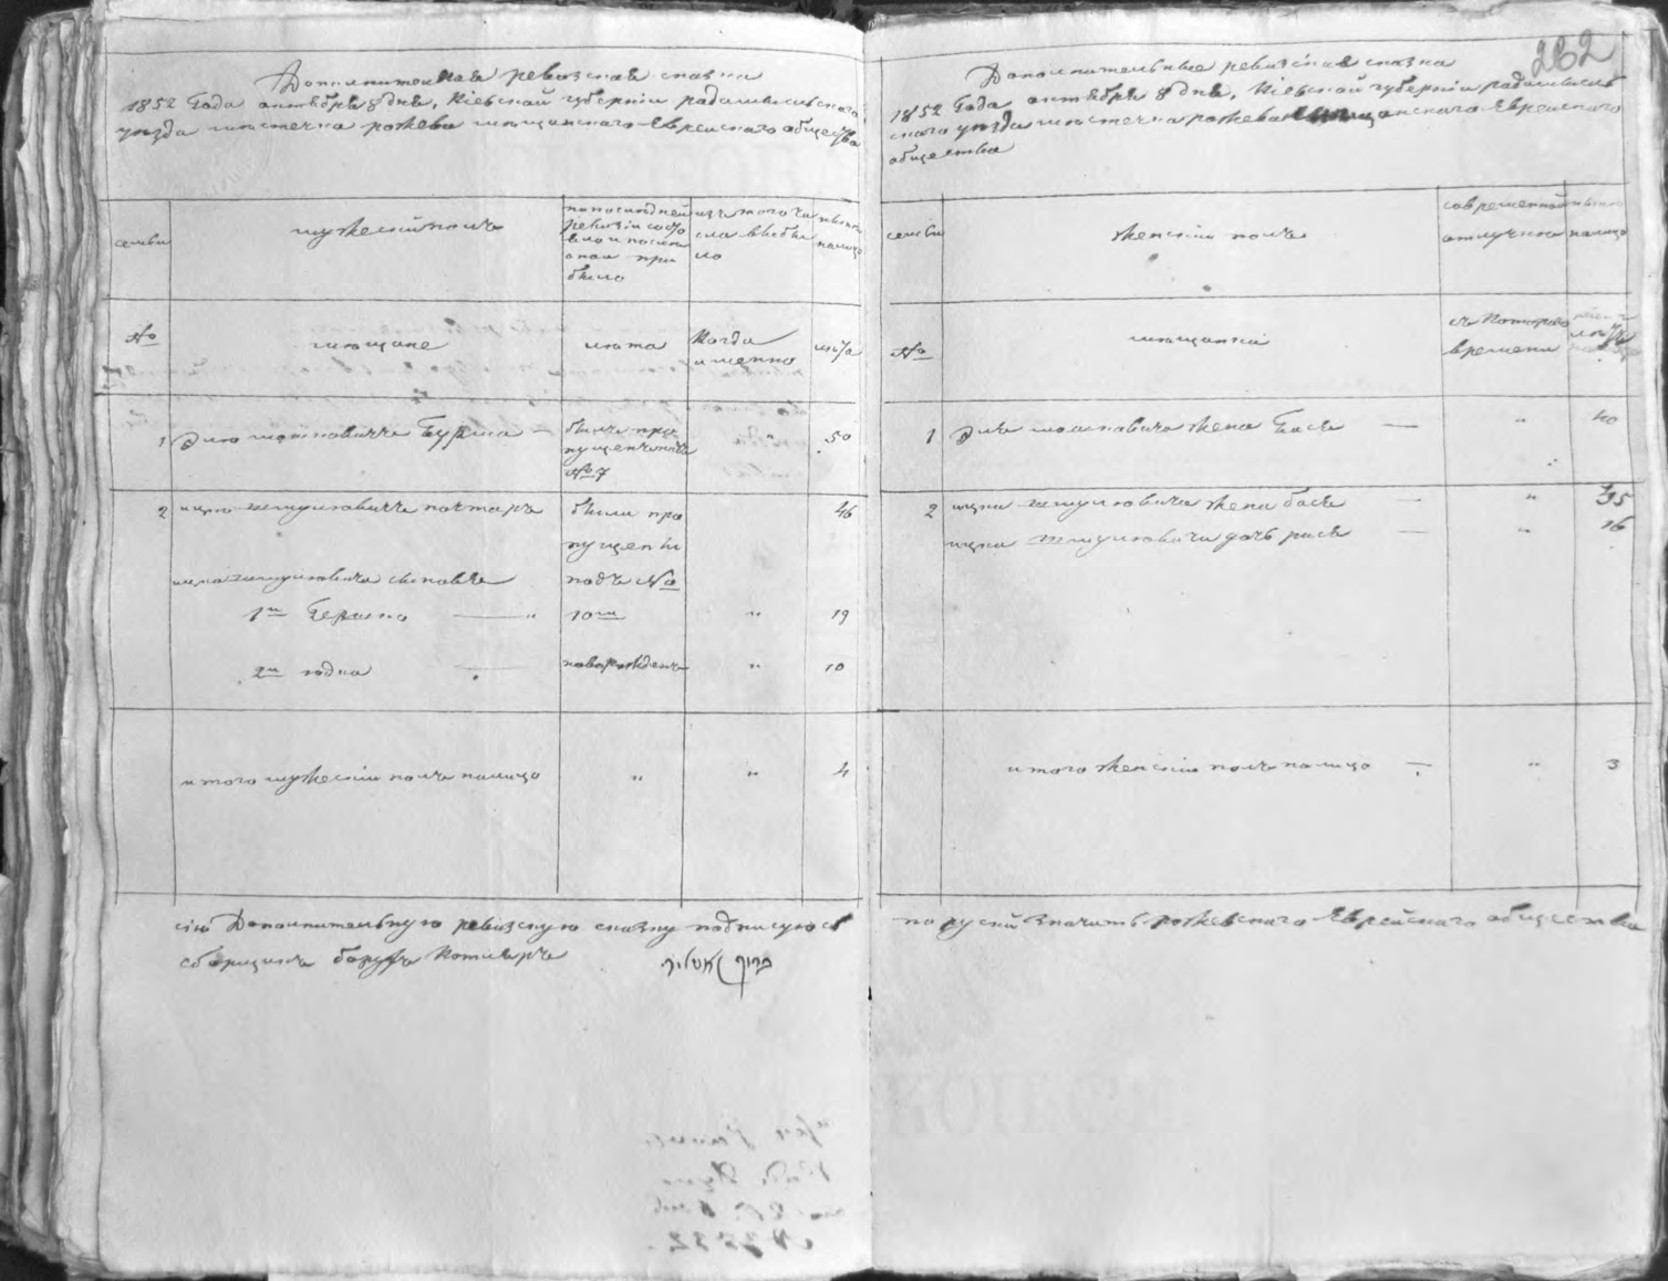 Дополнительная ревизская сказка
1852 Года октября 8 дня, Кіевской губерніи радомысльского
уезда местечка рожева мещанского Еврейского общества
семьи
мужеский полъ
по последней
ревизіи состо
яло и после
оной при
было
изъ того чи
сла выбы
ло
ныне
налицо
№
мещане
лета
Когда
именно
лета
1
Элю мошковичъ Бурша —
былъ про
пущенъ подъ
№ 7
"
50
2
ицко шмулиовичъ котляръ
были про
46
пущены
ицка шмулиовича сыновья
подъ №
1й Берко — "
10м
"
19
2й юдка —
новорожденъ
"
10
итого мужеский полъ налицо
"
"
4
сію Дополнительную ревизскую сказку подписуюсь
сборщикъ борухъ Котляръ
ברוך קאטליר
232
Дополнительные ревизская сказка
1852 Года октября 8 дня, Кіевской губерніи радомысль
ского уезда местечка рожева мещанского Еврейского
общества
семьи
женский полъ
современной
отлучке
ныне
налицо
№
мещанки
съ Которого
времени
лета
1
Эля мошковича жена Бася —
"
40
2
ицки шмулиовича жена бася —
"
45
ицки шмулиовича дочь рися —
"
16
итого женский полъ налицо —
"
3
по руский значитъ рожевского Еврейского общества